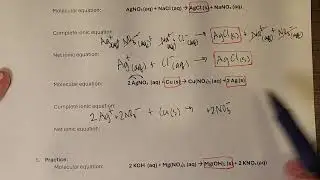 Molecular equation: AgNO₃ (aq) + NaCl (aq) → AgCl (s) + NaNO₃ (aq)
Complete ionic equation:
AgCl(s)
Net ionic equation: Ag⁺(aq) + Cl⁻(aq) → AgCl(s)
Molecular equation: 2 AgNO₃ (aq) + Cu (s) → Cu(NO₃)₂ (aq) + 2 Ag (s)
Complete ionic equation:
2 Ag⁺ + 2NO₃⁻ + Cu(s) → + 2NO₃⁻
Net ionic equation:
5. Practice:
Molecular equation: 2 KOH (aq) + Mg(NO₃)₂ (aq) → Mg(OH)₂ (s) + 2 KNO₃ (aq)